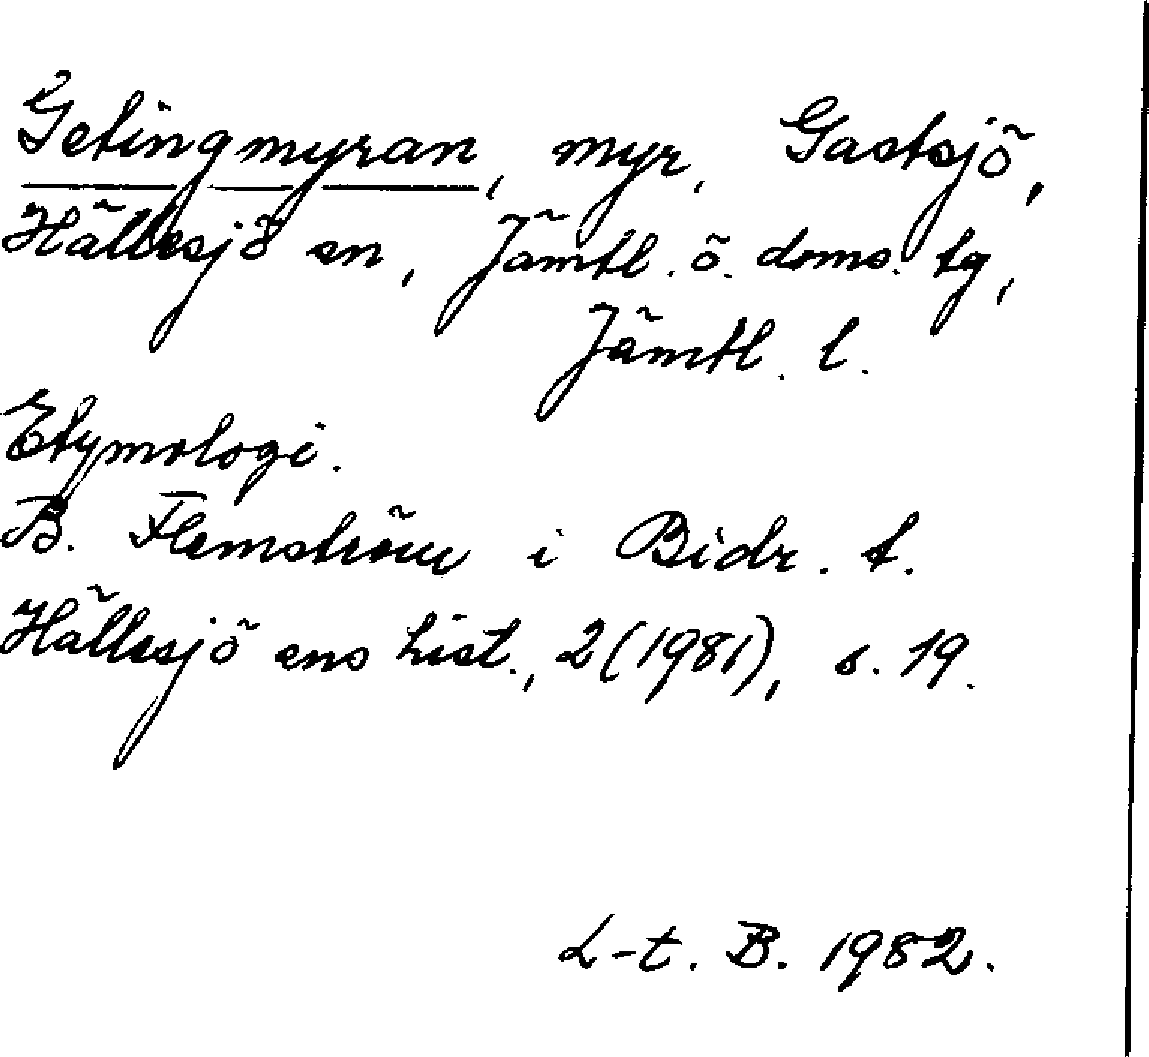 Getingmyran, myr, Gastsjö,
Hällesjö sn, Jämtl. ö. doms. tg,
Jämtl. l.
Etymologi.
B. Flemström i Bidr. t.
Hällesjö sns hist., 2(1981), s. 19.
L-t. B. 1982.